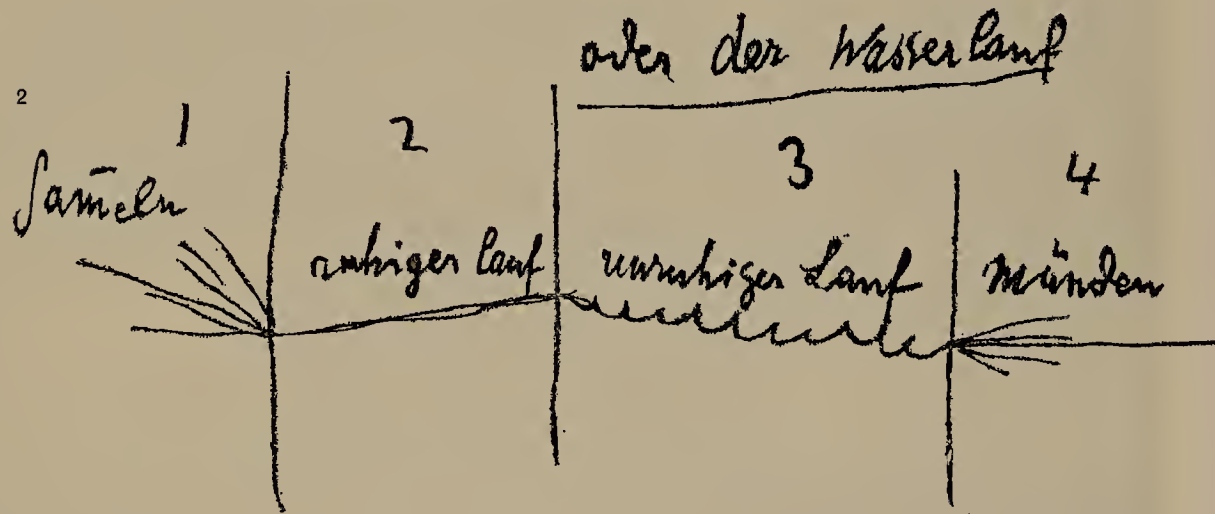 oder der Wasserlauf
2
1 2 3 4
Sam̄eln ruhiger lauf unruhiger Lauf münden